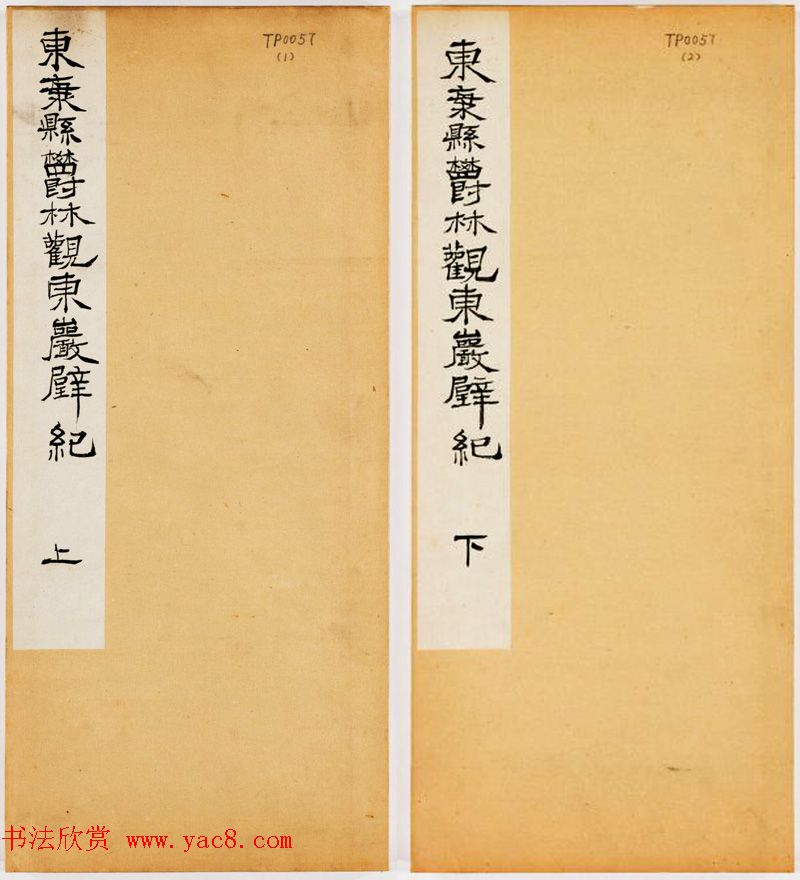 東海縣鬱林觀東巖壁紀 上
TP0057
(1)
東海縣鬱林觀東巖壁紀 下
TP0057
(2)
书法欣赏 www.yac8.com